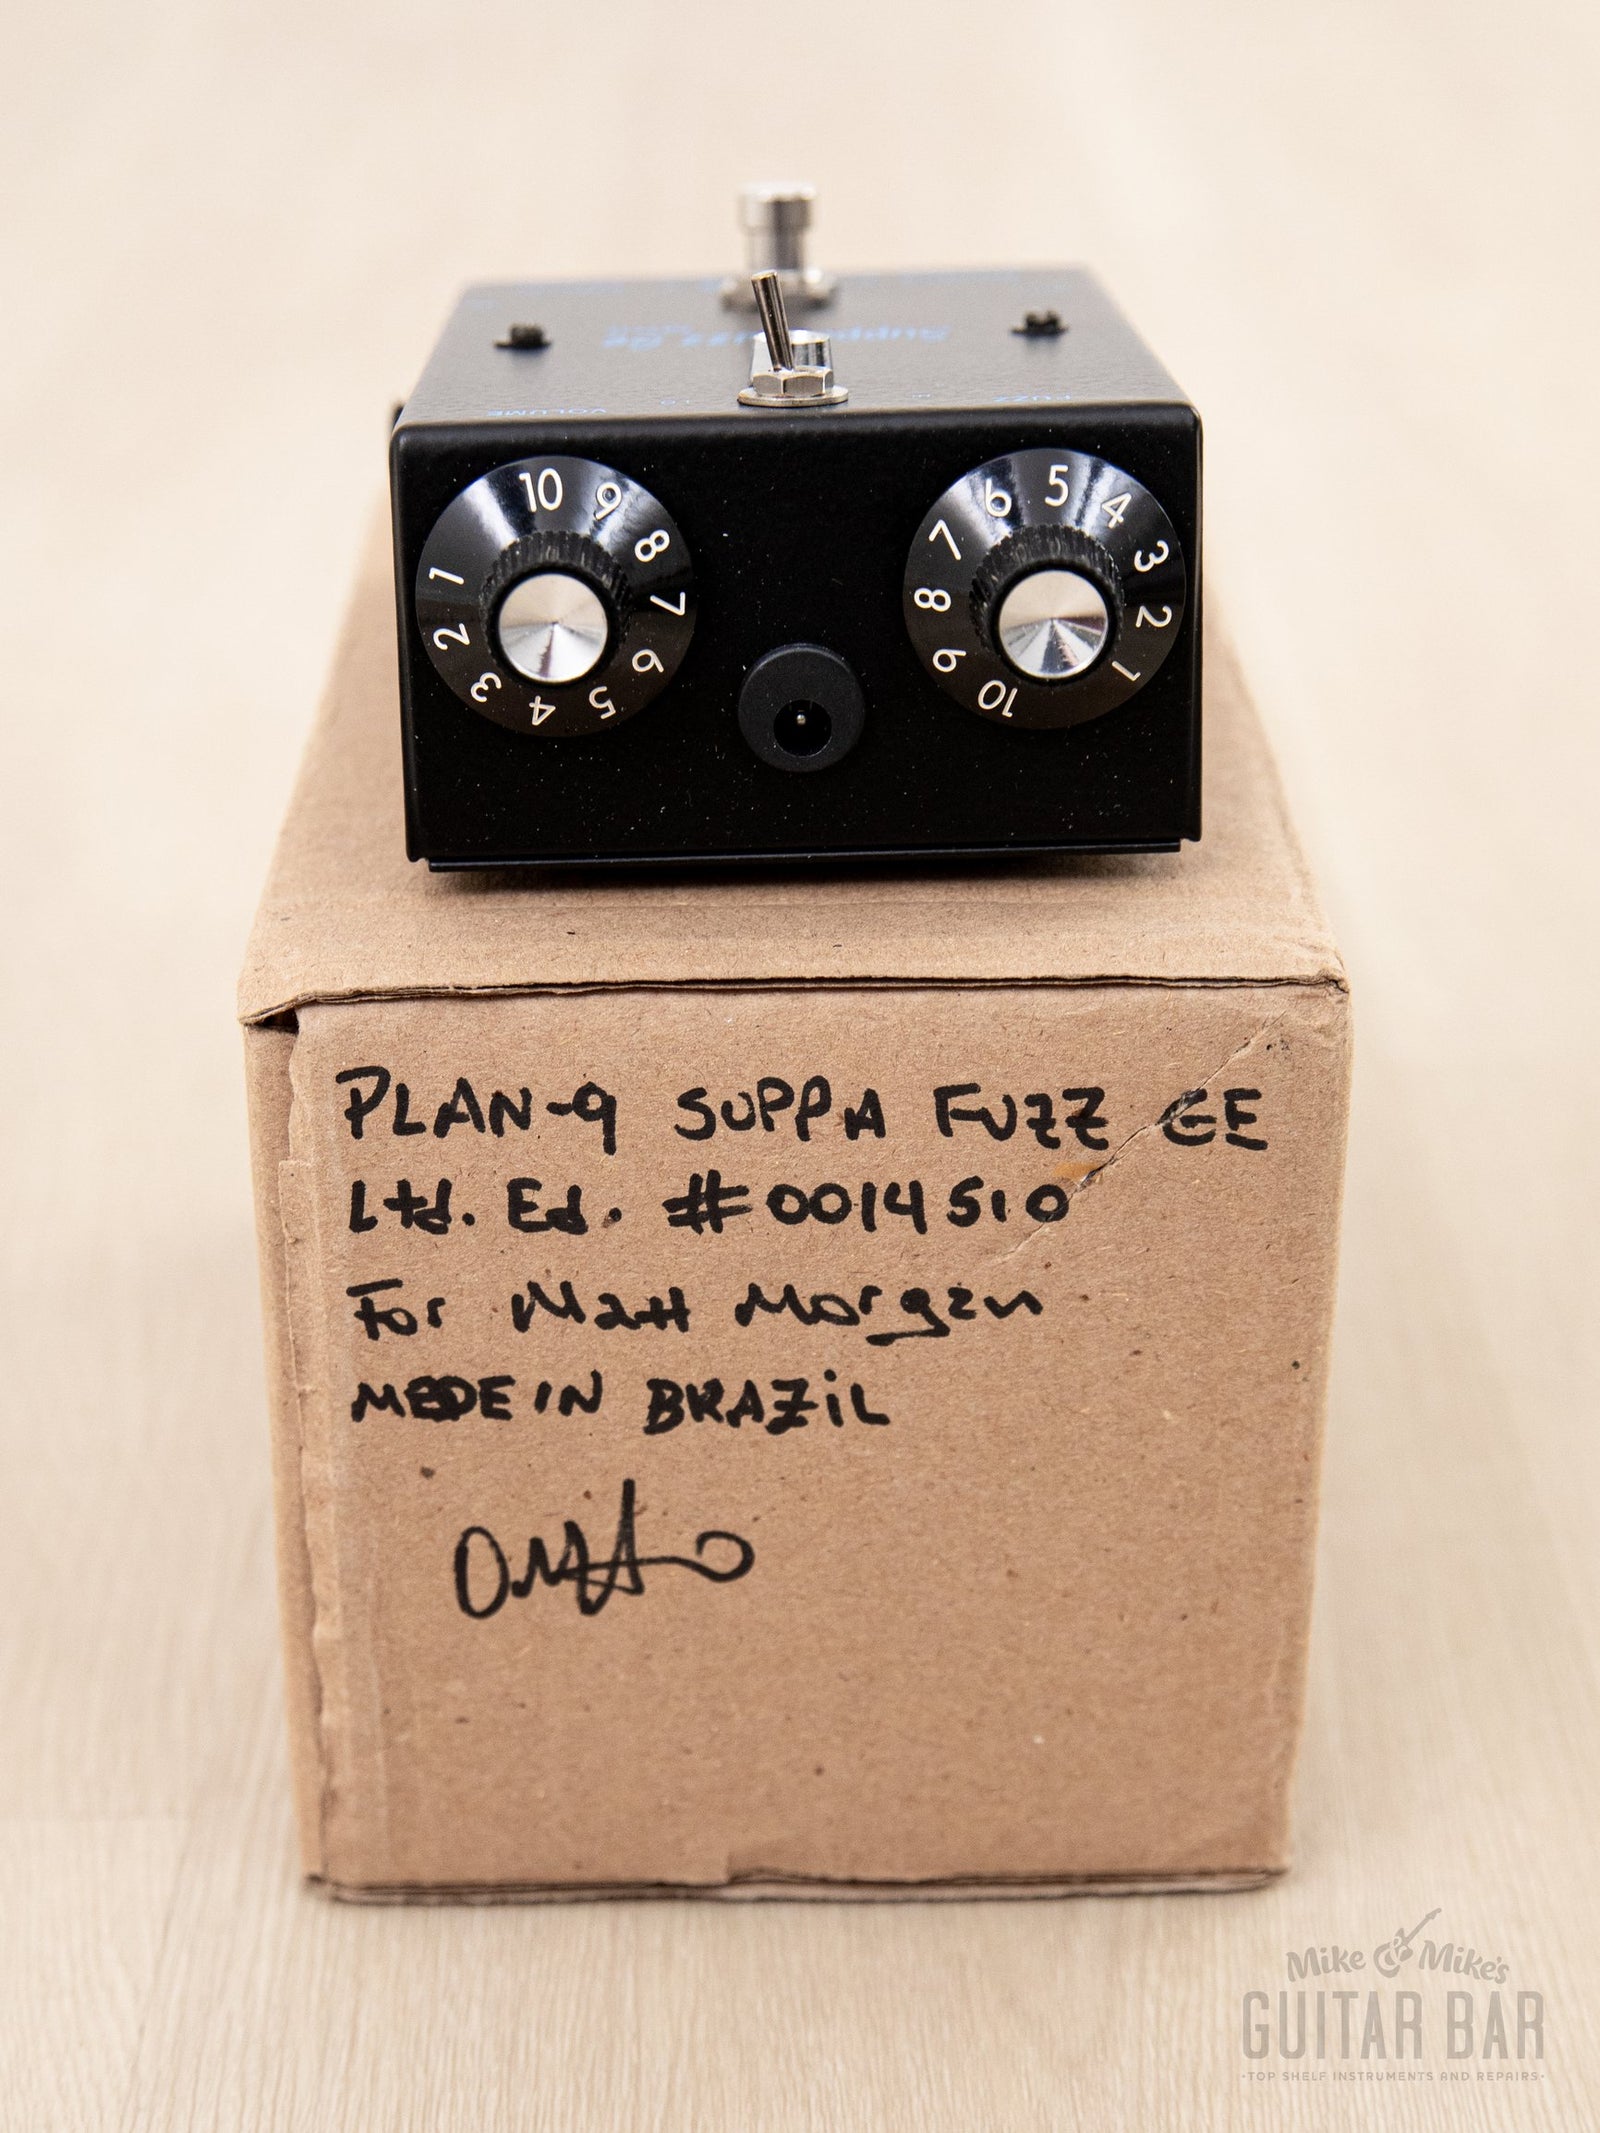 Suppa Fuzz Ge
VOLUME
LO
FUZZ
10 9 8 7 6 5 4 3 2 1
10 9 8 7 6 5 4 3 2 1
PLAN-9 SUPPA FUZZ GE
Ltd. Ed. #0014510
For Matt Morgan
MEDE IN BRAZIL
Mike & Mike's
GUITAR BAR
·TOP SHELF INSTRUMENTS AND REPAIRS·